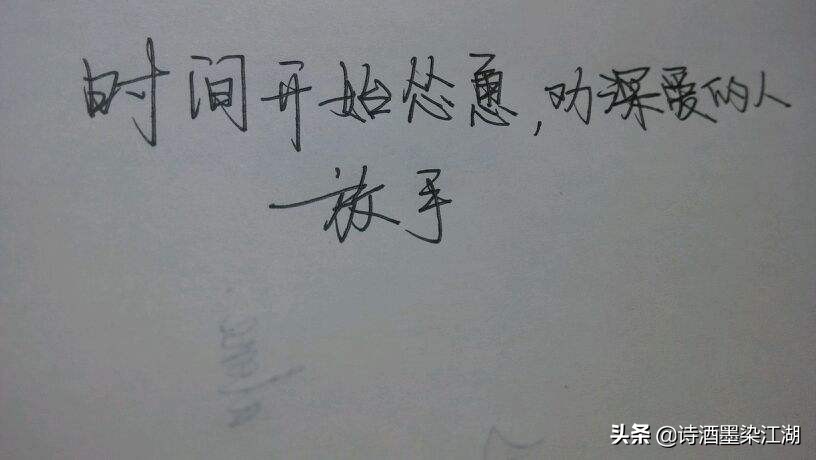 时间开始怂恿,劝深爱的人
放手
头条 @诗酒墨染江湖